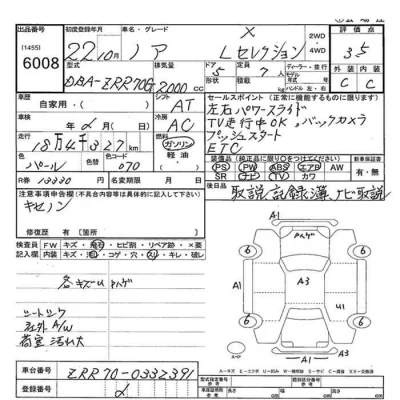 出品番号
[1455]
6008
初度登録年月
車名・グレード
評価点
22年10月 ノア
X
Lセレクション
2WD
4WD
3.5
型式
排気量
ドア
形状
定員
外装 内装
DBA-ZRR70G
2000 cc
5
7人
C C
車歴
自家用・( )
シフト
AT
セールスポイント(正常に機能するものに限ります)
左右パワースライド
TV走行中OK,バックカメラ
プッシュスタート
ETC
車検
年 月
冷房
AC
走行
184327km
燃料
ガソリン
軽油
色
パール
色替
色コード
070
R券 13330 円
名変期限 月 日
装備品(純正品に限り○をつけてください)
PS PW ABS エアB AW
SR ナビ TV カワ
新車保証書
有・無
後日品
取説,記録簿,ナビ取説
注意事項申告欄(不具合内容等は具体的に記入して下さい)
キセノン
修復歴 有 [箇所 ]
検査員
記入欄
FW キズ・ ・ヒビ割・リペア跡・×要
内装 キズ・ ・コゲ・穴・ ・キレ・破レ
各キズUハゲ
シートシワ
社外A/W
荷室汚れ大
A1
ハゲ
6
6
6
6
A1
A3
A3
U1
A1
スペア
車台番号
ZRR70-0332391
登録番号
型式指定番号
類別区分番号
長さ cm
幅 cm
高さ cm